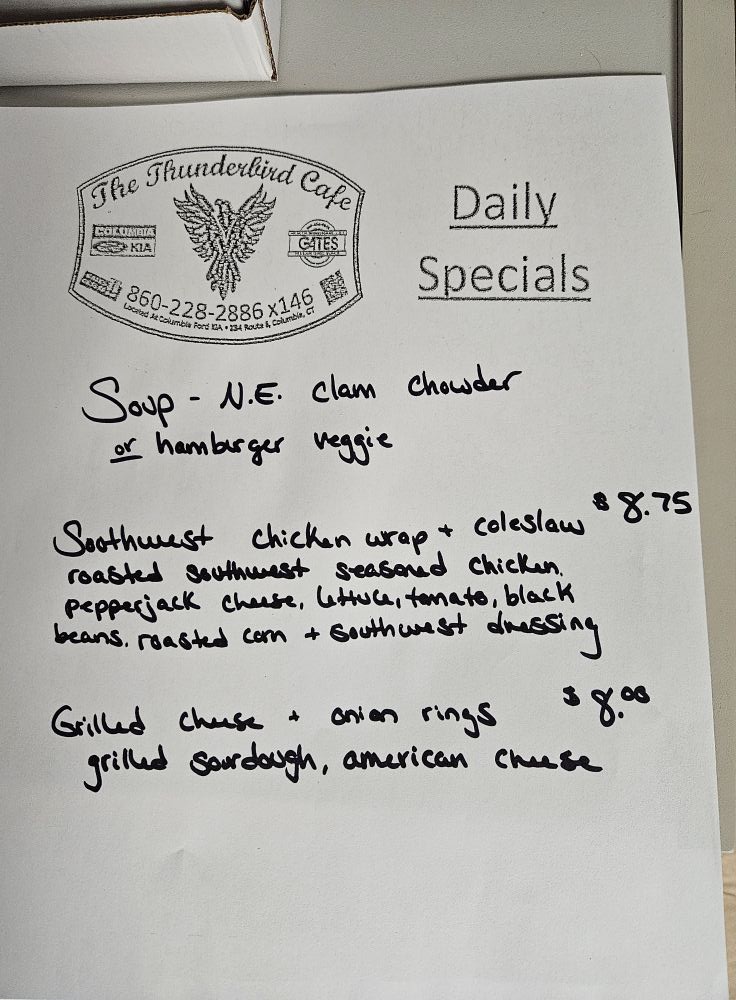 The Thunderbird Cafe
COLUMBIA
KIA
GATES
860-228-2886 x146
Located At Columbia Ford KIA • 234 Route 6, Columbia, CT
Daily
Specials
Soup - N.E. Clam Chowder
or hamburger veggie
Southwest chicken wrap + coleslaw $8.75
roasted southwest seasoned chicken,
pepperjack cheese, lettuce, tomato, black
beans, roasted corn + southwest dressing
Grilled cheese + onion rings $8.00
grilled sourdough, american cheese